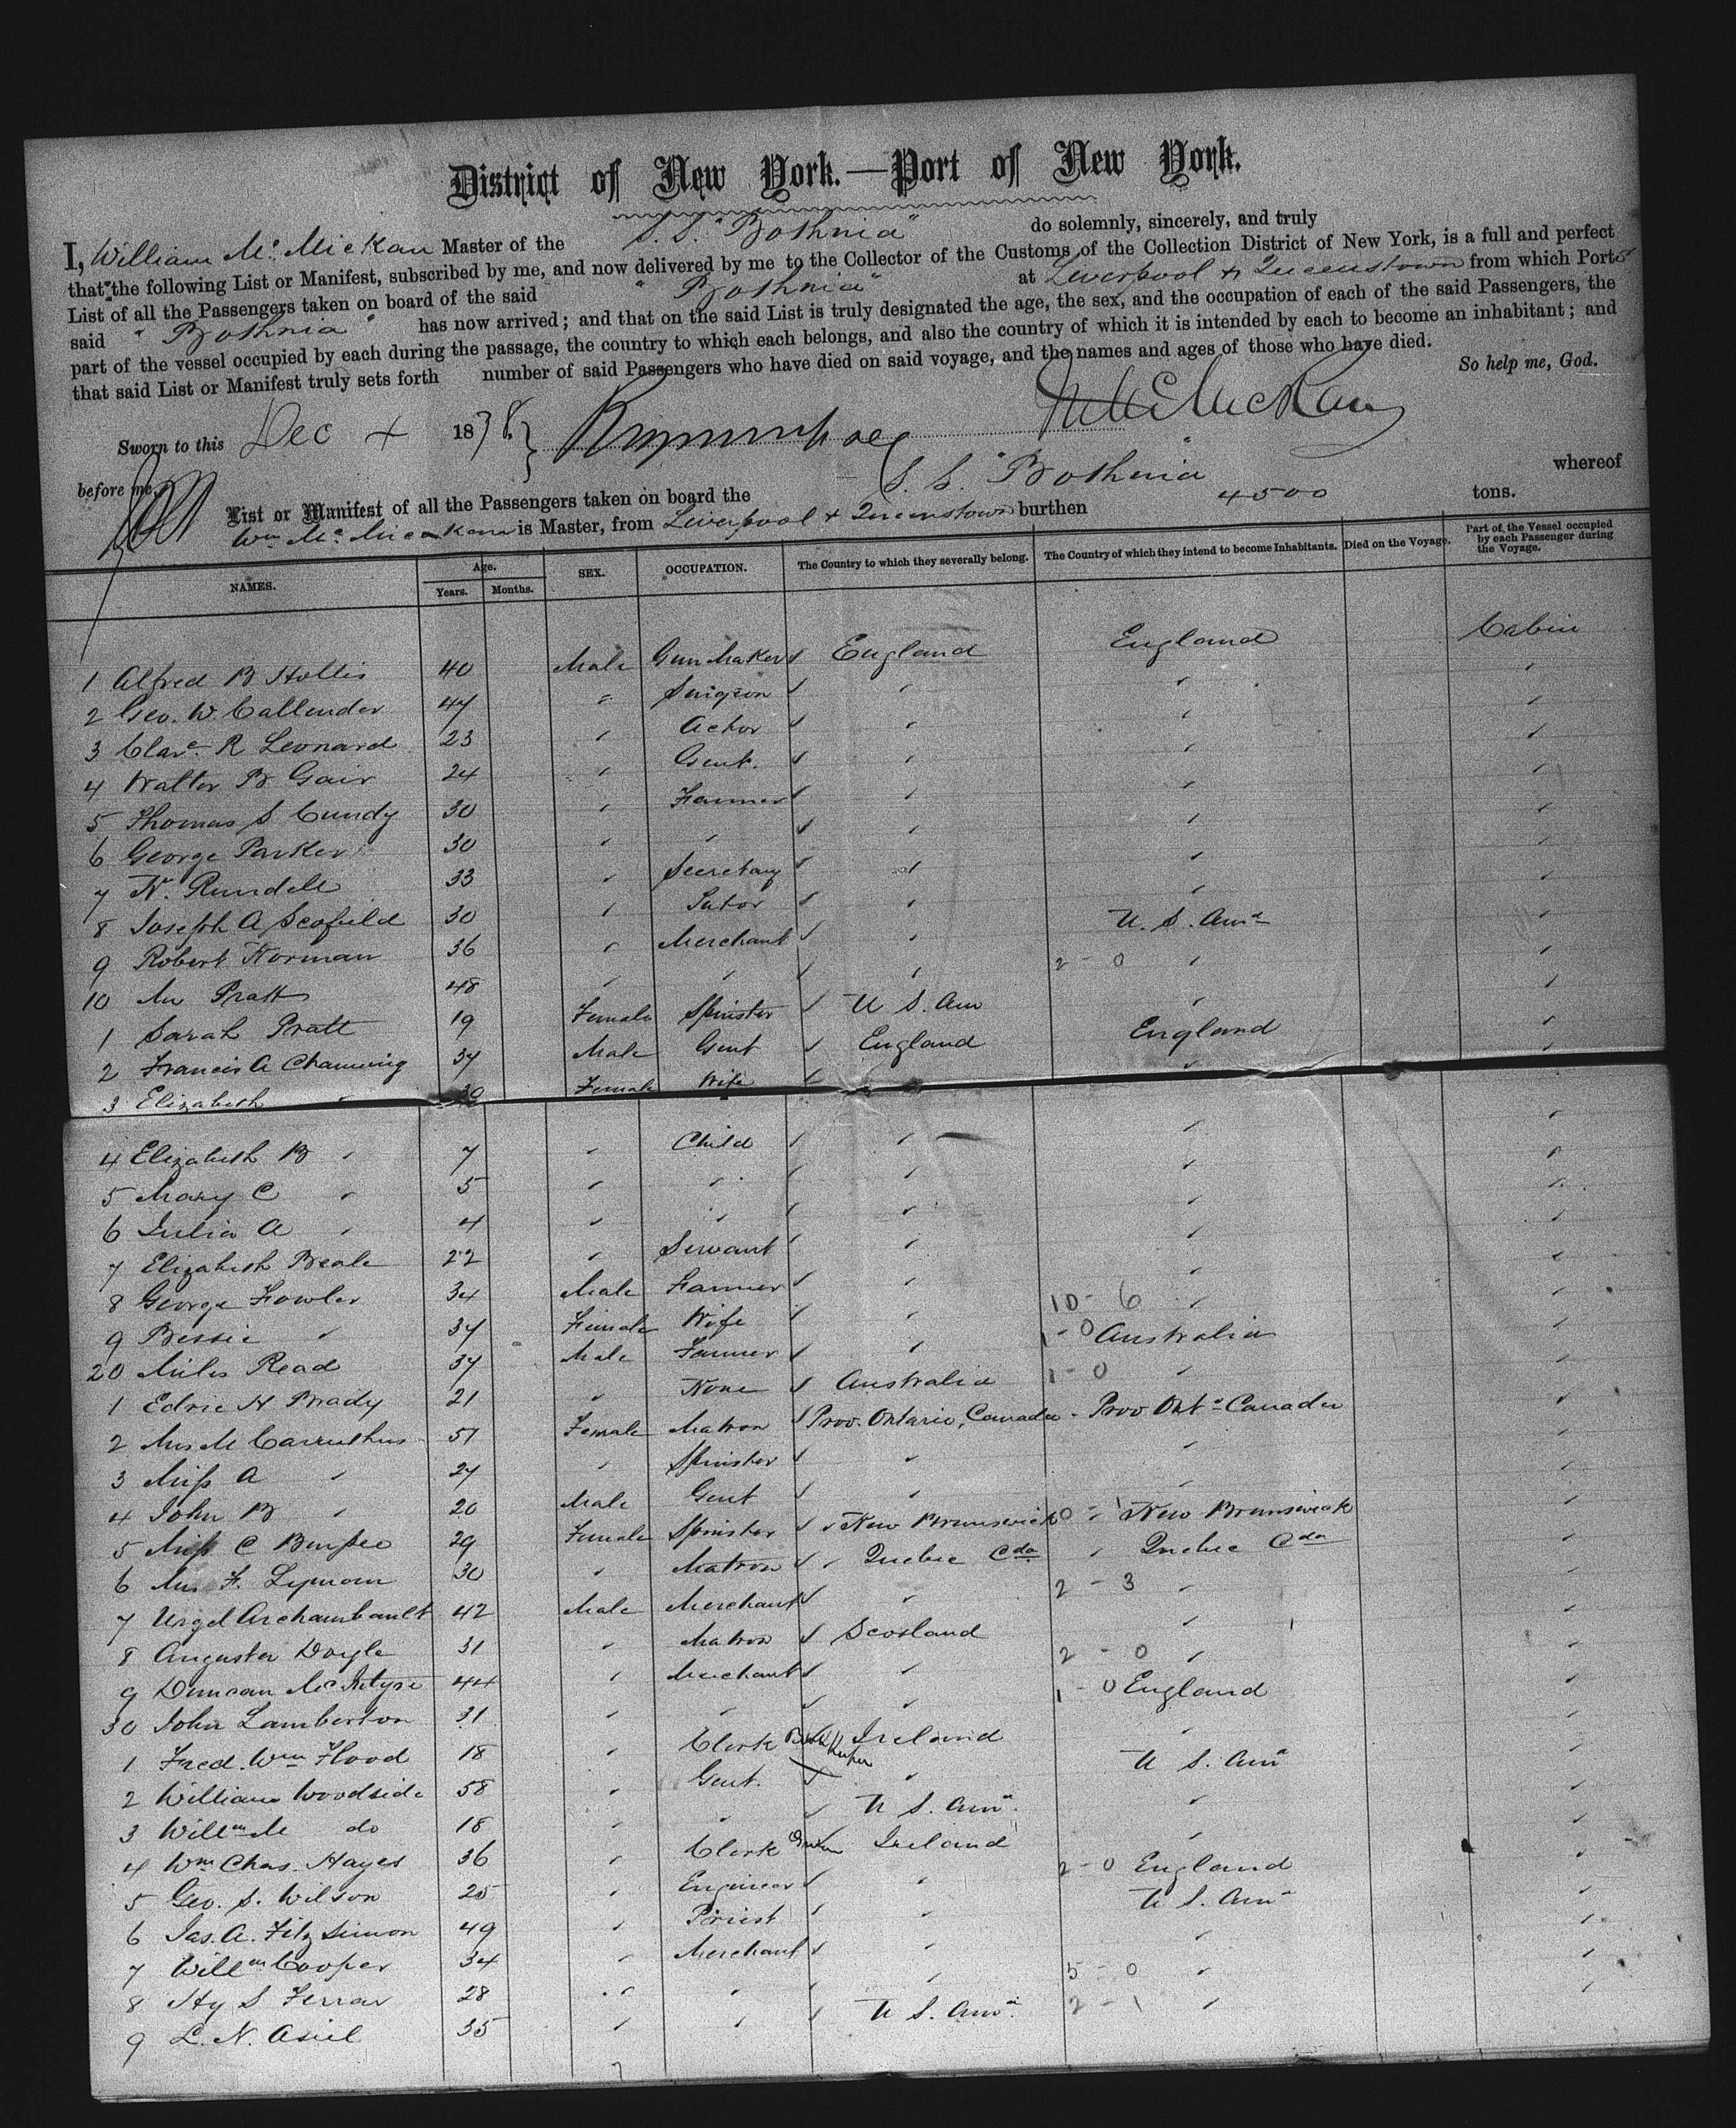 District of New York.—Port of New York.
I, William Mc. Mickan Master of the S. S. "Bothnia" do solemnly, sincerely, and truly
that the following List or Manifest, subscribed by me, and now delivered by me to the Collector of the Customs of the Collection District of New York, is a full and perfect
List of all the Passengers taken on board of the said "Bothnia" at Liverpool & Queenstown from which Ports
said "Bothnia" has now arrived; and that on the said List is truly designated the age, the sex, and the occupation of each of the said Passengers, the
part of the vessel occupied by each during the passage, the country to which each belongs, and also the country of which it is intended by each to become an inhabitant; and
that said List or Manifest truly sets forth number of said Passengers who have died on said voyage, and the names and ages of those who have died.
So help me, God.
Sworn to this Dec 4 1878. } W McMickan
before me,
List or Manifest of all the Passengers taken on board the S. S. "Bothnia" whereof
Wm Mc. Mickan is Master, from Liverpool & Queenstown burthen 4500 tons.
NAMES. Age. Years. Months. SEX. OCCUPATION. The Country to which they severally belong. The Country of which they intend to become Inhabitants. Died on the Voyage. Part of the Vessel occupied by each Passenger during the Voyage.
1 Alfred B Hollis 40 Male Gun Maker England England Cabin
2 Geo. W. Callender 47 " Surgeon " " "
3 Clare R Leonard 23 " Actor " " "
4 Walter B Gair 24 " Gent. " " "
5 Thomas S Cundy 30 " Farmer " " "
6 George Parker 30 " " " " "
7 Wm Rundell 33 " Secretary " " "
8 Joseph A Scofield 30 " Tutor " " "
9 Robert Horman 36 " Merchant " U. S. Ama "
10 Mr Pratt 48 " " " 2 - 0 " "
1 Sarah Pratt 19 Female Spinster U S. Am " "
2 Francis A Channing 37 Male Gent England England "
3 Elizabeth " Female Wife " "
4 Elizabeth B " 7 " Child " " "
5 Mary C " 5 " " " " "
6 Julia A " 4 " " " " "
7 Elizabeth Beale 22 " Servant " " "
8 George Fowler 34 Male Farmer " " "
9 Bessie " 37 Female Wife " 10 - 6 " "
20 Miles Read 37 Male Farmer " 1 - 0 Australia "
1 Edric H Brady 21 " None Australia 1 - 0 " "
2 Mrs M Carruthers 57 Female Matron Prov. Ontario, Canada - Prov Onto Canada "
3 Miss A " 27 " Spinster " " "
4 John B " 20 Male Gent " " "
5 Miss C Burpee 29 Female Spinster New Brunswick New Brunswick "
6 Mrs F. Lyman 30 " Matron Quebec Cda Quebec Cda "
7 Urgel Archambault 42 Male Merchant " 2 - 3 " "
8 Augusta Doyle 31 " Matron Scotland " "
9 Duncan McIntyre 44 " Merchant " 2 - 0 " "
30 John Lamberton 31 " " " 1 - 0 England "
1 Fred. Wm Flood 18 " Clerk Book Keeper Ireland " "
2 William Woodside 58 " Gent. " U S. Ama "
3 Willm M do 18 " " U S. Ama " "
4 Wm Chas. Hayes 36 " Clerk Ireland " "
5 Geo. S. Wilson 25 " Engineer " 2 - 0 England "
6 Jas. A. Fitz Simon 49 " Priest " U S. Ama "
7 Willm Cooper 34 " Merchant " " "
8 Hy S Ferrar 28 " " " 5 - 0 " "
9 L. N. Asiel 35 " " U S. Ama 2 - 1 " "